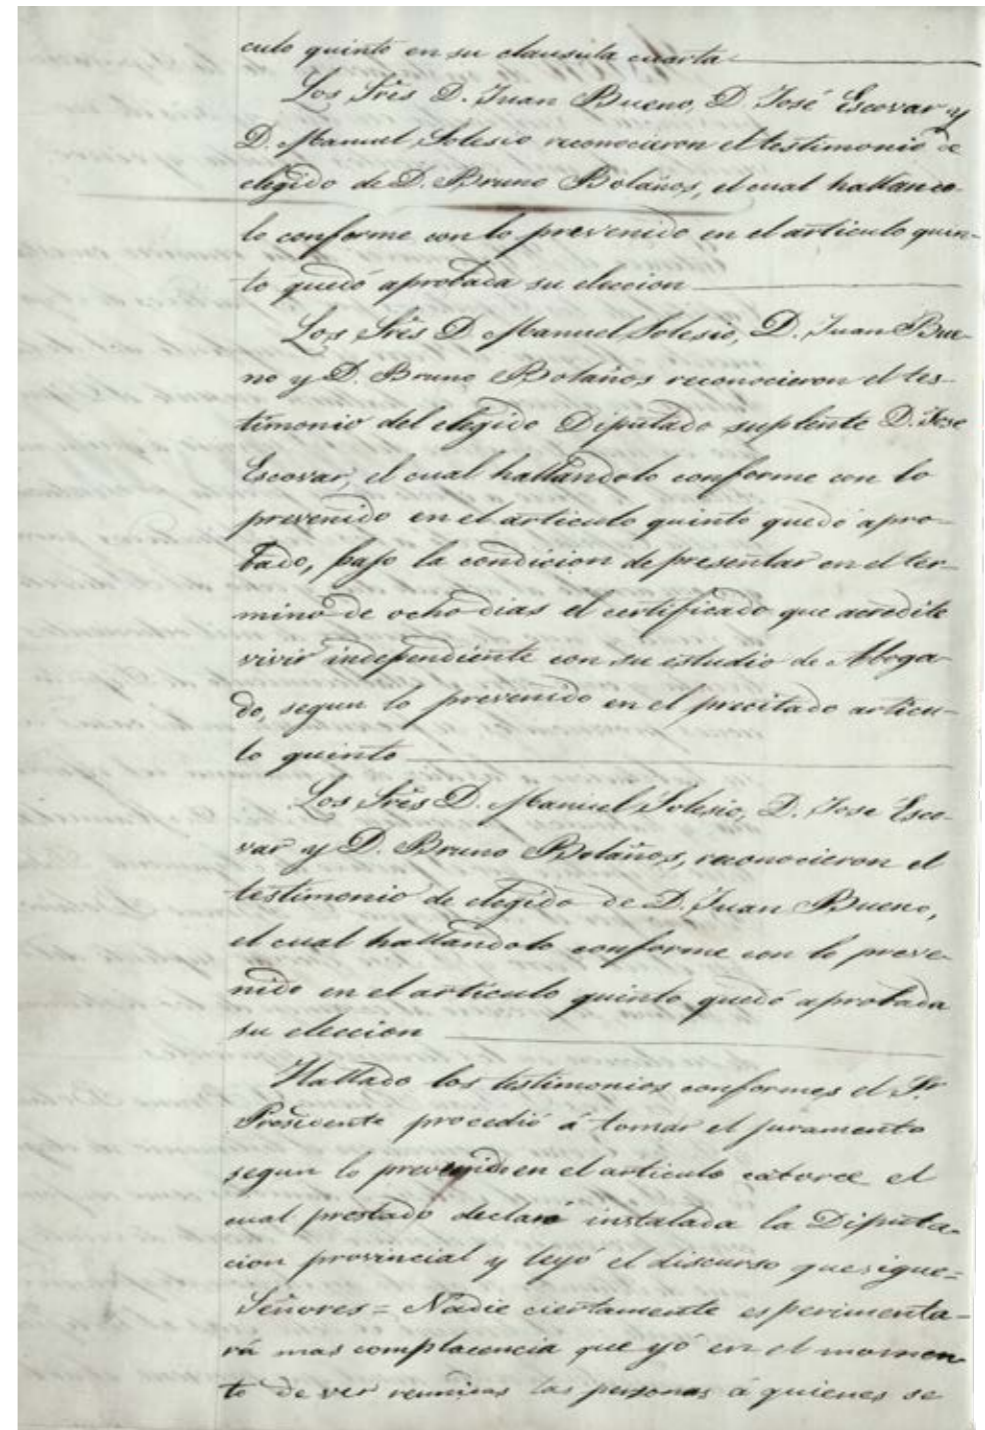 culo quinto en su clausula cuarta
Los Sres D. Juan Bueno, D. José Escovar y
D. Manuel Solesio reconocieron el testimonio de
elegido de D. Bruno Bolaños, el cual hallando-
lo conforme con lo prevenido en el articulo quin-
to quedó aprobada su eleccion
Los Sres D. Manuel Solesio, D. Juan Bue-
no y D. Bruno Bolaños reconocieron el tes-
timonio del elegido Diputado suplente D. Jose
Escovar, el cual hallandolo conforme con lo
prevenido en el articulo quinto quedó apro-
bado, bajo la condicion de presentar en el ter-
mino de ocho dias el certificado que acredite
vivir independiente con su estudio de Aboga-
do, segun lo prevenido en el precitado articu-
lo quinto
Los Sres D. Manuel Solesio, D. Jose Esco-
var y D. Bruno Bolaños, reconocieron el
testimonio de elegido de D. Juan Bueno,
el cual hallandolo conforme con lo preve-
nido en el articulo quinto quedó aprobada
su eleccion
Hallado los testimonios conformes el Sr.
Presidente procedió á tomar el juramento
segun lo prevenido en el articulo catorce el
cual prestado declaró instalada la Diputa-
cion provincial y leyó el discurso que sigue=
Señores = Nadie ciertamente esperimenta-
rá mas complacencia que yó en el momen-
to de ver reunidas las personas á quienes se